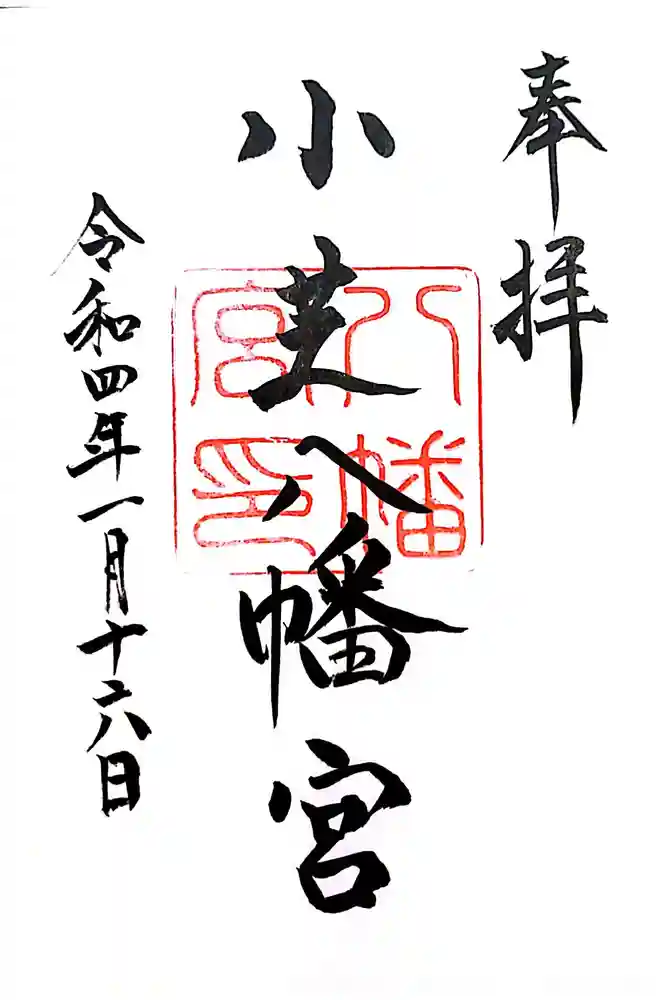 奉拝
小芝八幡宮
八幡宮印
令和四年一月十六日